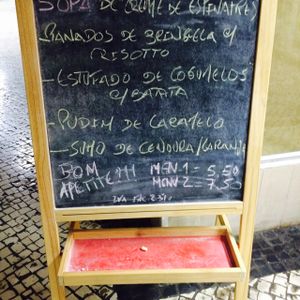 SOPA DE CREME DE ESPINAFRES
- PANADOS DE BRINGELA C/
RISOTTO
- ESTUFADO DE COGUMELOS
C/BATATA
- PUDIM DE CARAMELO
- SUMO DE CENOURA/LARANJA
BOM MENU 1 = 5,50
APETITE!!! MENU 2 = 7,50
IVA INC. 23%